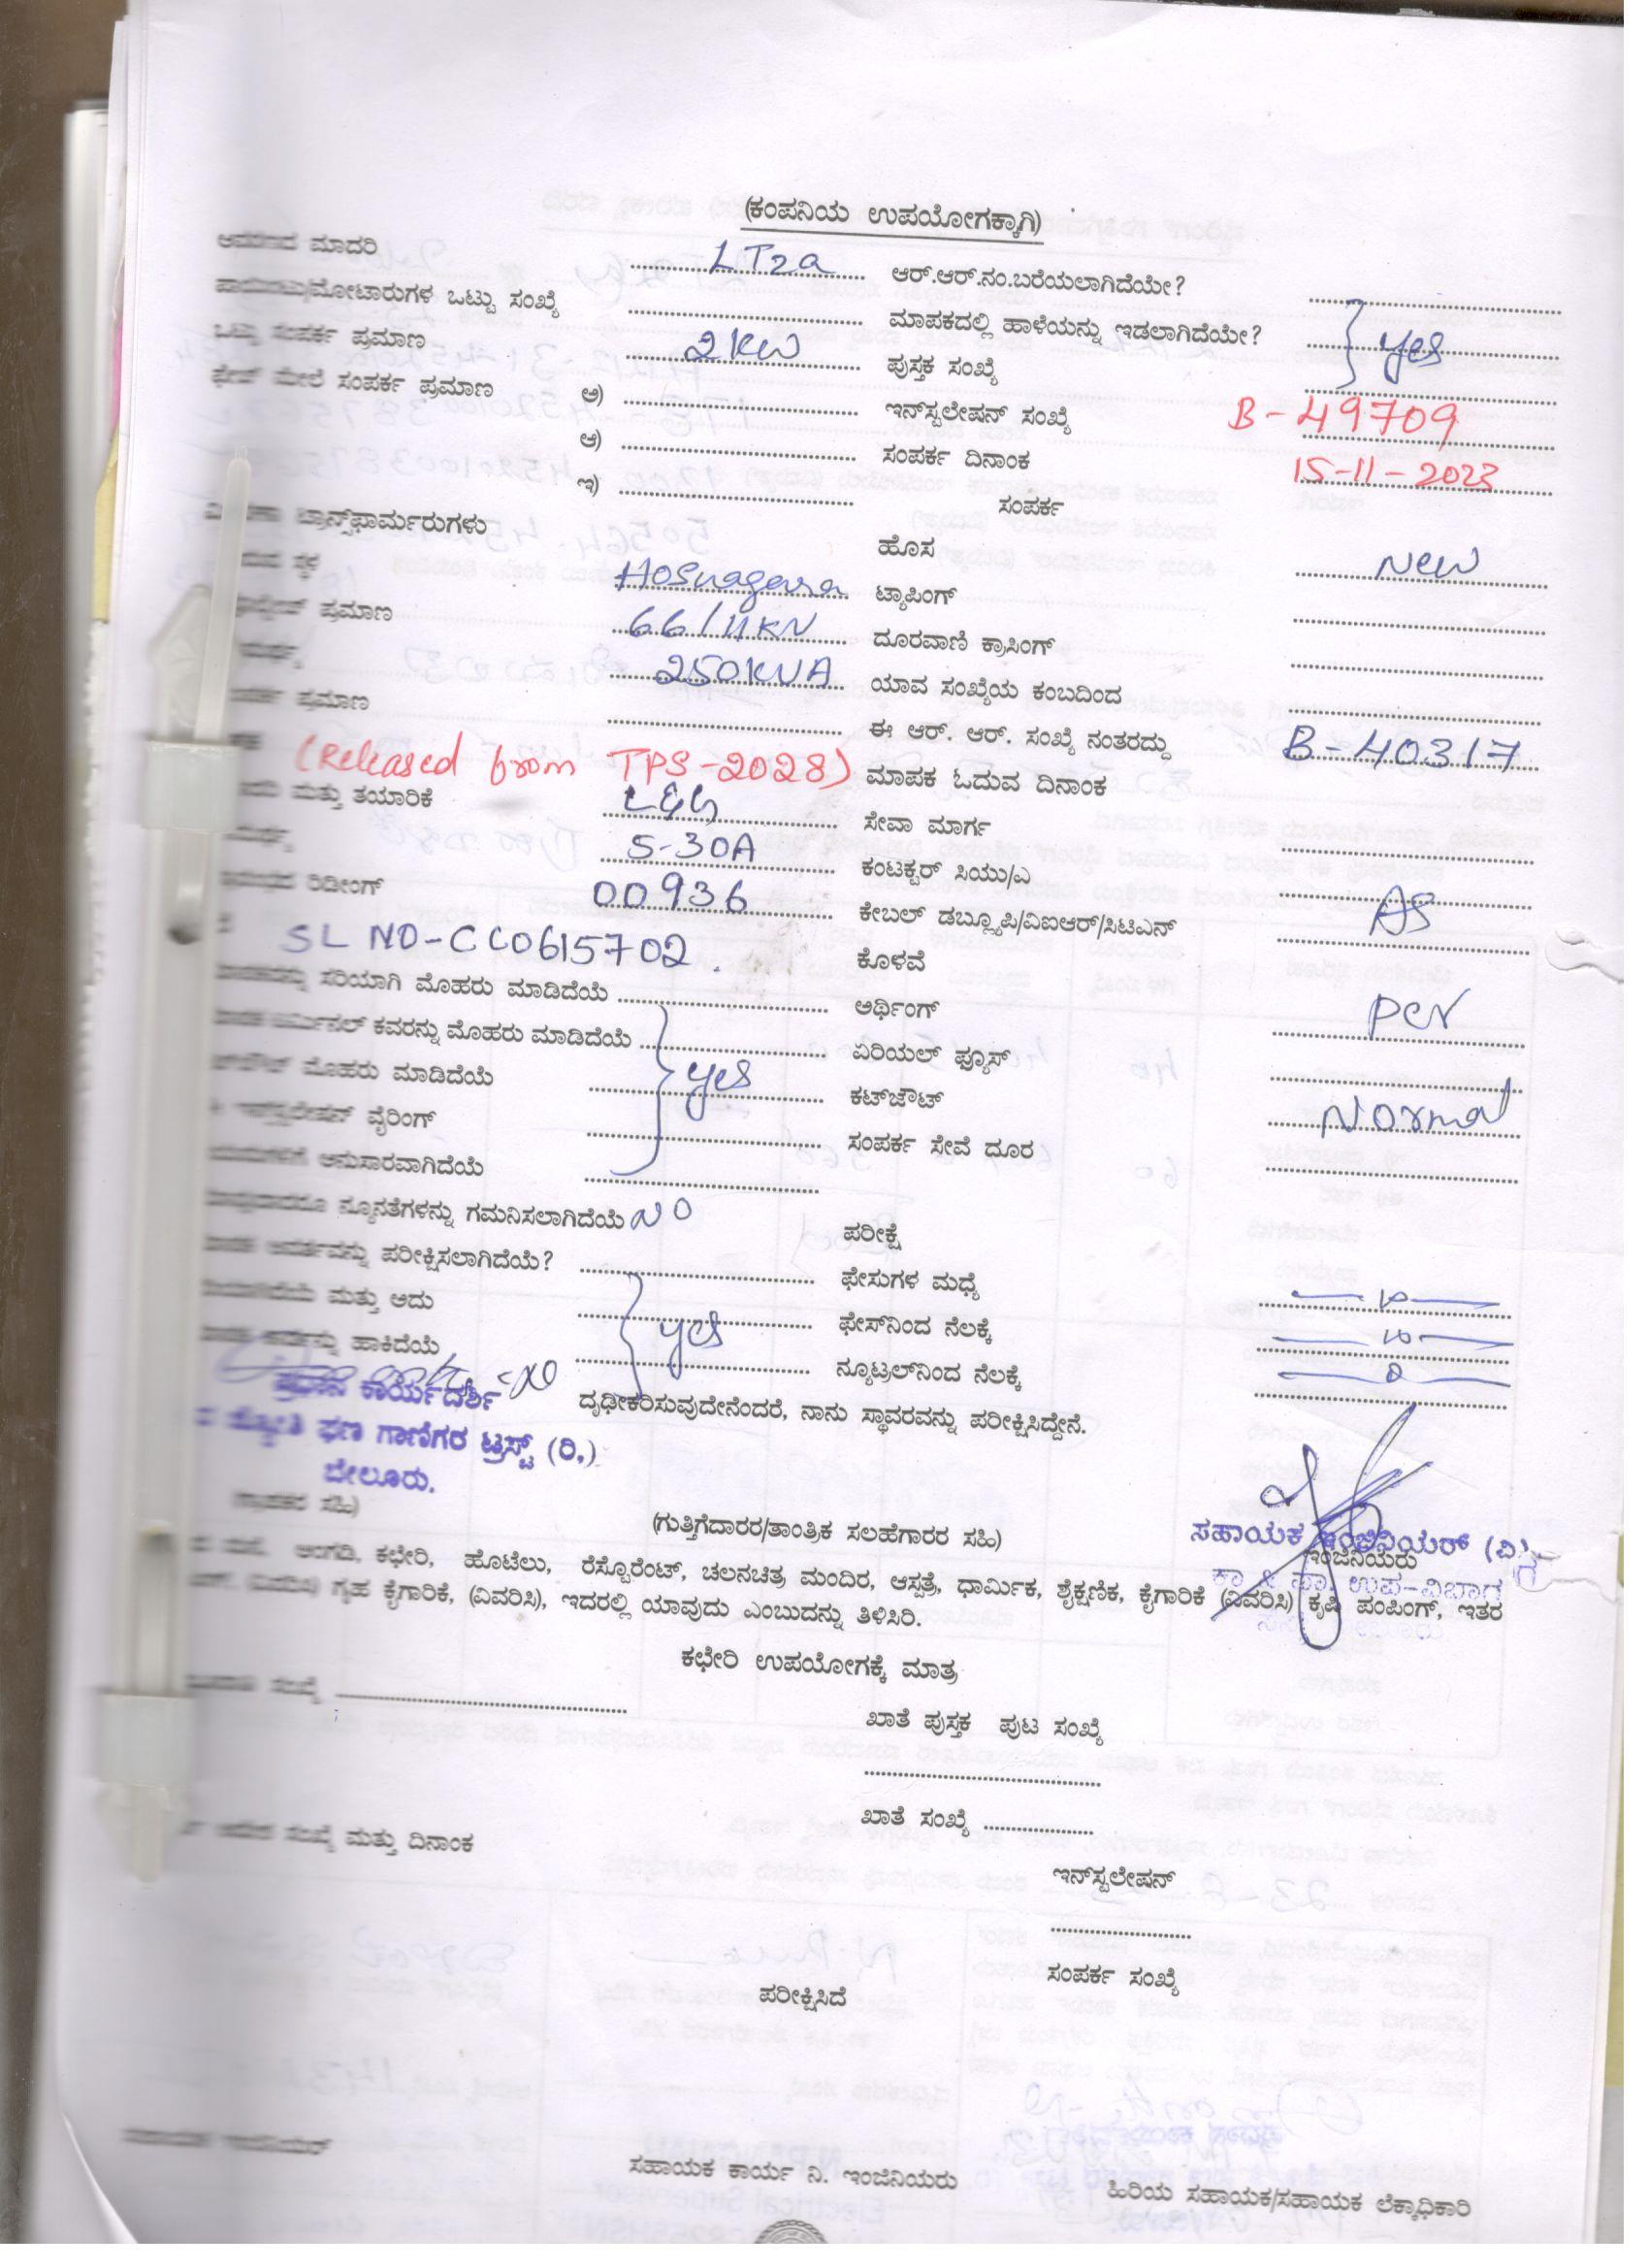 (ಕಂಪನಿಯ ಉಪಯೋಗಕ್ಕಾಗಿ)
ಮಾದರಿ LT2a ಆರ್.ಆರ್.ನಂ.ಬರೆಯಲಾಗಿದೆಯೇ?
ಮೋಟಾರುಗಳ ಒಟ್ಟು ಸಂಖ್ಯೆ ಮಾಪಕದಲ್ಲಿ ಹಾಳೆಯನ್ನು ಇಡಲಾಗಿದೆಯೇ? yes
ಒಟ್ಟು ಸಂಪರ್ಕ ಪ್ರಮಾಣ 2KW ಪುಸ್ತಕ ಸಂಖ್ಯೆ
ಮೇಲೆ ಸಂಪರ್ಕ ಪ್ರಮಾಣ ಅ) ಇನ್‌ಸ್ಟಲೇಷನ್ ಸಂಖ್ಯೆ B-49709
ಆ) ಸಂಪರ್ಕ ದಿನಾಂಕ 15-11-2023
ಇ) ಸಂಪರ್ಕ
ಟ್ರಾನ್ಸ್‌ಫಾರ್ಮರುಗಳು ಹೊಸ New
ಸ್ಥಳ Hosnagara ಟ್ಯಾಪಿಂಗ್
ಪ್ರಮಾಣ 66/11KV ದೂರವಾಣಿ ಕ್ರಾಸಿಂಗ್
250KVA ಯಾವ ಸಂಖ್ಯೆಯ ಕಂಬದಿಂದ
ಪ್ರಮಾಣ ಈ ಆರ್. ಆರ್. ಸಂಖ್ಯೆ ನಂತರದ್ದು B-40317
(Released from TPS-2028) ಮಾಪಕ ಓದುವ ದಿನಾಂಕ
ಮತ್ತು ತಯಾರಿಕೆ L&G ಸೇವಾ ಮಾರ್ಗ
5-30A ಕಂಟಕ್ಟರ್ ಸಿಯು/ಎ
ರಿಡೀಂಗ್ 00936 ಕೇಬಲ್ ಡಬ್ಲ್ಯೂಪಿ/ವಿಐಆರ್/ಸಿಟಿಎನ್ AS
SL NO-CC0615702. ಕೊಳವೆ
ಸರಿಯಾಗಿ ಮೊಹರು ಮಾಡಿದೆಯೆ ಅರ್ಥಿಂಗ್ per
ಕವರನ್ನು ಮೊಹರು ಮಾಡಿದೆಯೆ ಏರಿಯಲ್ ಫ್ಯೂಸ್
ಮೊಹರು ಮಾಡಿದೆಯೆ yes ಕಟ್‌ಔಟ್ Normal
ವೈರಿಂಗ್ ಸಂಪರ್ಕ ಸೇವೆ ದೂರ
ಅನುಸಾರವಾಗಿದೆಯೆ
ನ್ಯೂನತೆಗಳನ್ನು ಗಮನಿಸಲಾಗಿದೆಯೆ NO ಪರೀಕ್ಷೆ
ಪರೀಕ್ಷಿಸಲಾಗಿದೆಯೆ? ಫೇಸುಗಳ ಮಧ್ಯೆ
ಮತ್ತು ಅದು yes ಫೇಸ್‌ನಿಂದ ನೆಲಕ್ಕೆ
ಹಾಕಿದೆಯೆ ನ್ಯೂಟ್ರಲ್‌ನಿಂದ ನೆಲಕ್ಕೆ
ಪ್ರಧಾನ ಕಾರ್ಯದರ್ಶಿ ದೃಢೀಕರಿಸುವುದೇನೆಂದರೆ, ನಾನು ಸ್ಥಾವರವನ್ನು ಪರೀಕ್ಷಿಸಿದ್ದೇನೆ.
ಜ್ಯೋತಿ ಫಣ ಗಾಣಿಗರ ಟ್ರಸ್ಟ್ (ರಿ.)
ಬೇಲೂರು.
ಸಹಿ) (ಗುತ್ತಿಗೆದಾರರ/ತಾಂತ್ರಿಕ ಸಲಹೆಗಾರರ ಸಹಿ) ಸಹಾಯಕ ಇಂಜಿನಿಯರ್ (ವಿ)
ಇಂಜಿನಿಯರು
ಉಪ-ವಿಭಾಗ
ಅಂಗಡಿ, ಕಛೇರಿ, ಹೊಟೆಲು, ರೆಸ್ಟೊರೆಂಟ್, ಚಲನಚಿತ್ರ ಮಂದಿರ, ಆಸ್ಪತ್ರೆ, ಧಾರ್ಮಿಕ, ಶೈಕ್ಷಣಿಕ, ಕೈಗಾರಿಕೆ (ವಿವರಿಸಿ) ಕೃಷಿ ಪಂಪಿಂಗ್, ಇತರ
(ವಿವರಿಸಿ) ಗೃಹ ಕೈಗಾರಿಕೆ, (ವಿವರಿಸಿ), ಇದರಲ್ಲಿ ಯಾವುದು ಎಂಬುದನ್ನು ತಿಳಿಸಿರಿ.
ಕಛೇರಿ ಉಪಯೋಗಕ್ಕೆ ಮಾತ್ರ
ಸಂಖ್ಯೆ
ಖಾತೆ ಪುಸ್ತಕ ಪುಟ ಸಂಖ್ಯೆ
ಖಾತೆ ಸಂಖ್ಯೆ
ಸಂಖ್ಯೆ ಮತ್ತು ದಿನಾಂಕ
ಇನ್‌ಸ್ಟಲೇಷನ್
ಸಂಪರ್ಕ ಸಂಖ್ಯೆ
ಪರೀಕ್ಷಿಸಿದೆ
ಸಹಾಯಕ ಕಾರ್ಯ ನಿ. ಇಂಜಿನಿಯರು
ಹಿರಿಯ ಸಹಾಯಕ/ಸಹಾಯಕ ಲೆಕ್ಕಾಧಿಕಾರಿ